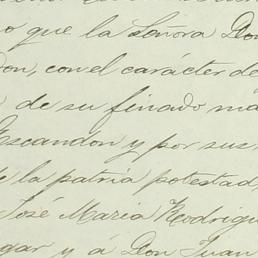 o que la Señora Don
don, con el carácter de
de su finado ma
Escandon y por sus
de la patria potestad,
José Maria Rodrigu
gar y á Don Juan